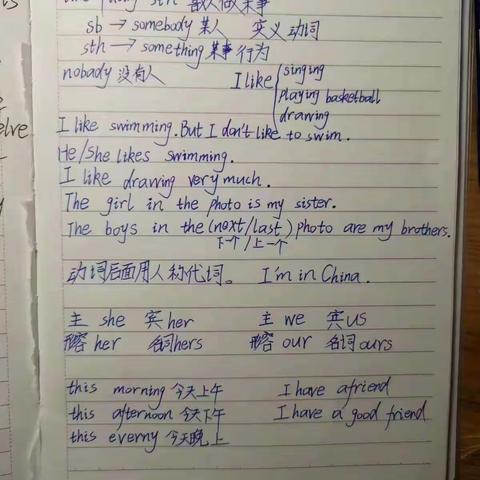 doing sth 做某事
sb → somebody 某人 实义动词
sth → something 某事 行为
nobady 没有人 I like singing
playing basketball
drawing
I like swimming. But I don't like to swim.
He/She likes swimming.
I like drawing very much.
The girl in the photo is my sister.
The boys in the (next/last) photo are my brothers.
下一个/上一个
动词后面用人称代词。 I'm in China.
主 she 宾 her 主 we 宾 us
形容 her 名词 hers 形容 our 名词 ours
this morning 今天上午 I have a friend
this afternoon 今天下午 I have a good friend
this everny 今天晚上